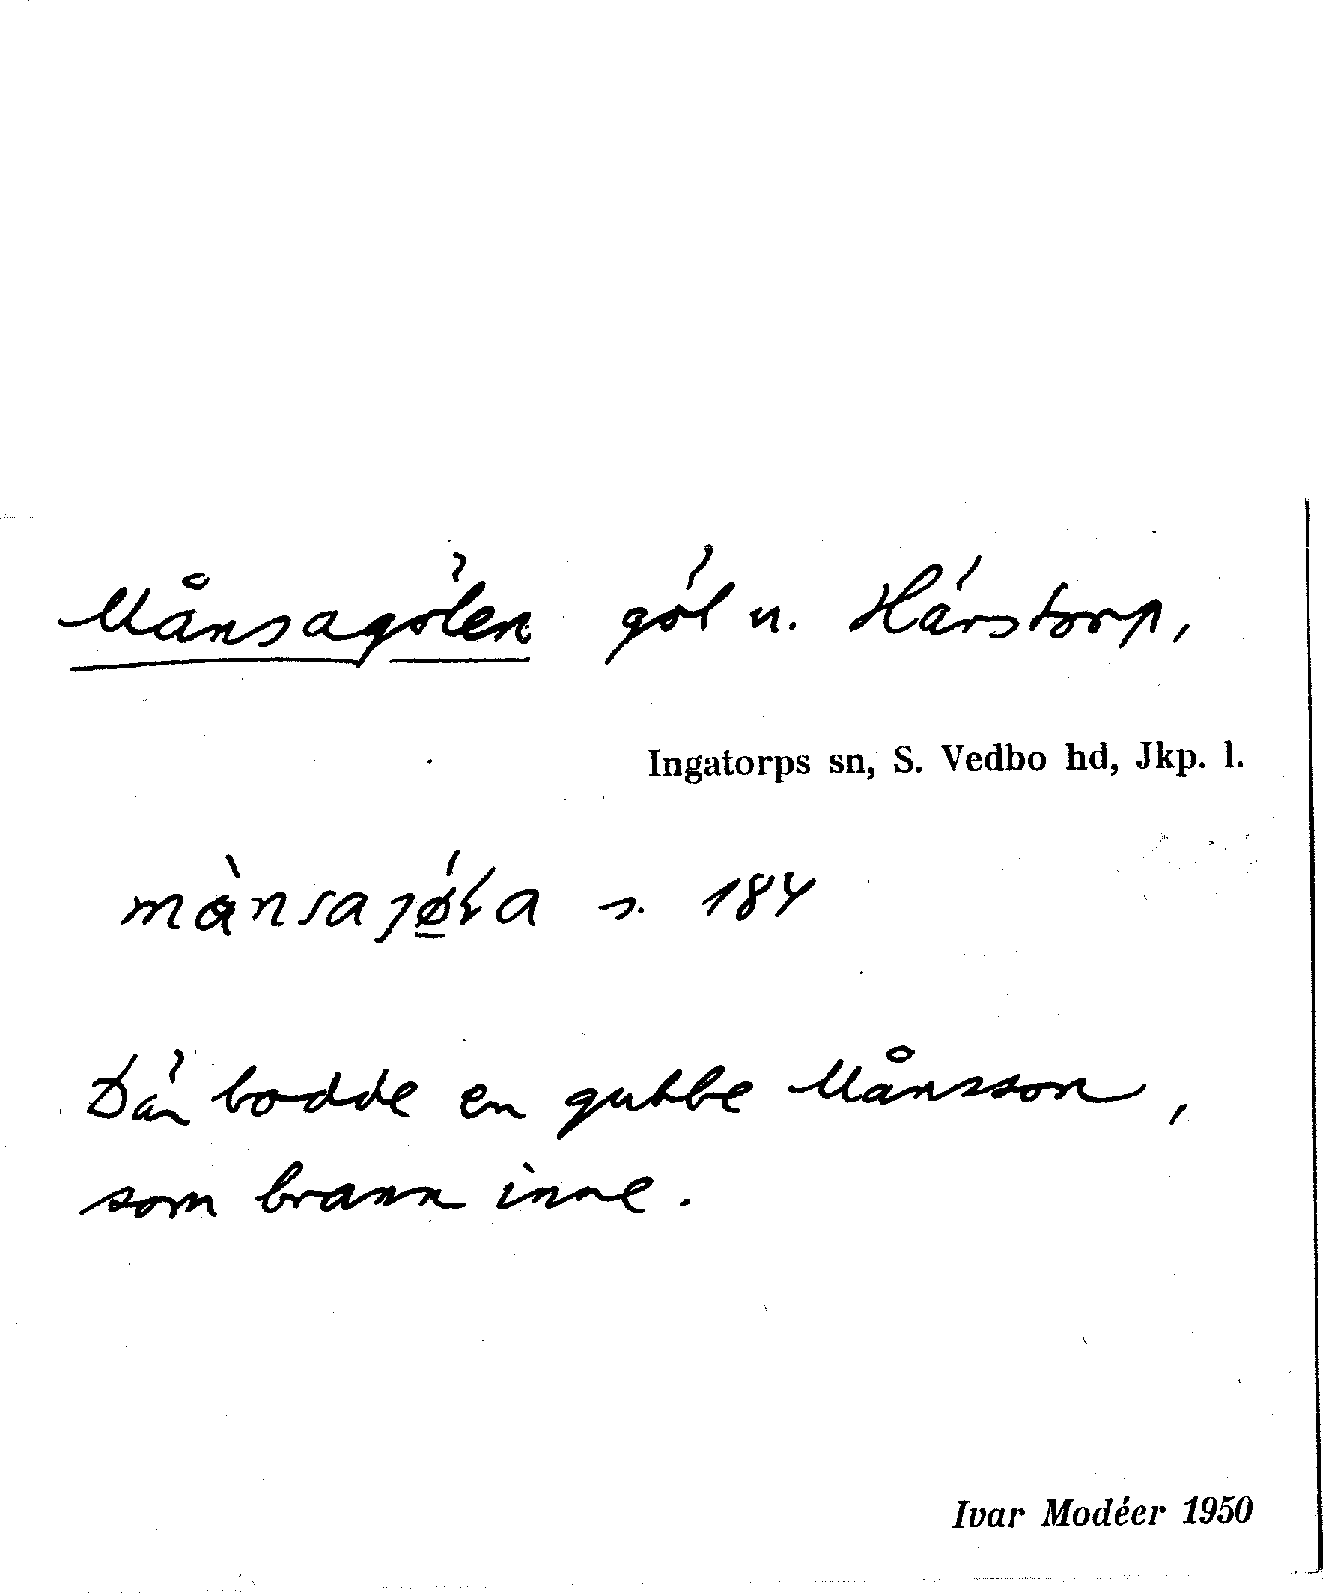 Månsagölen göl u. Härstorp,
Ingatorps sn, S. Vedbo hd, Jkp. l.
s. 184
Där bodde en gubbe Månsson,
som brann inne.
Ivar Modéer 1950